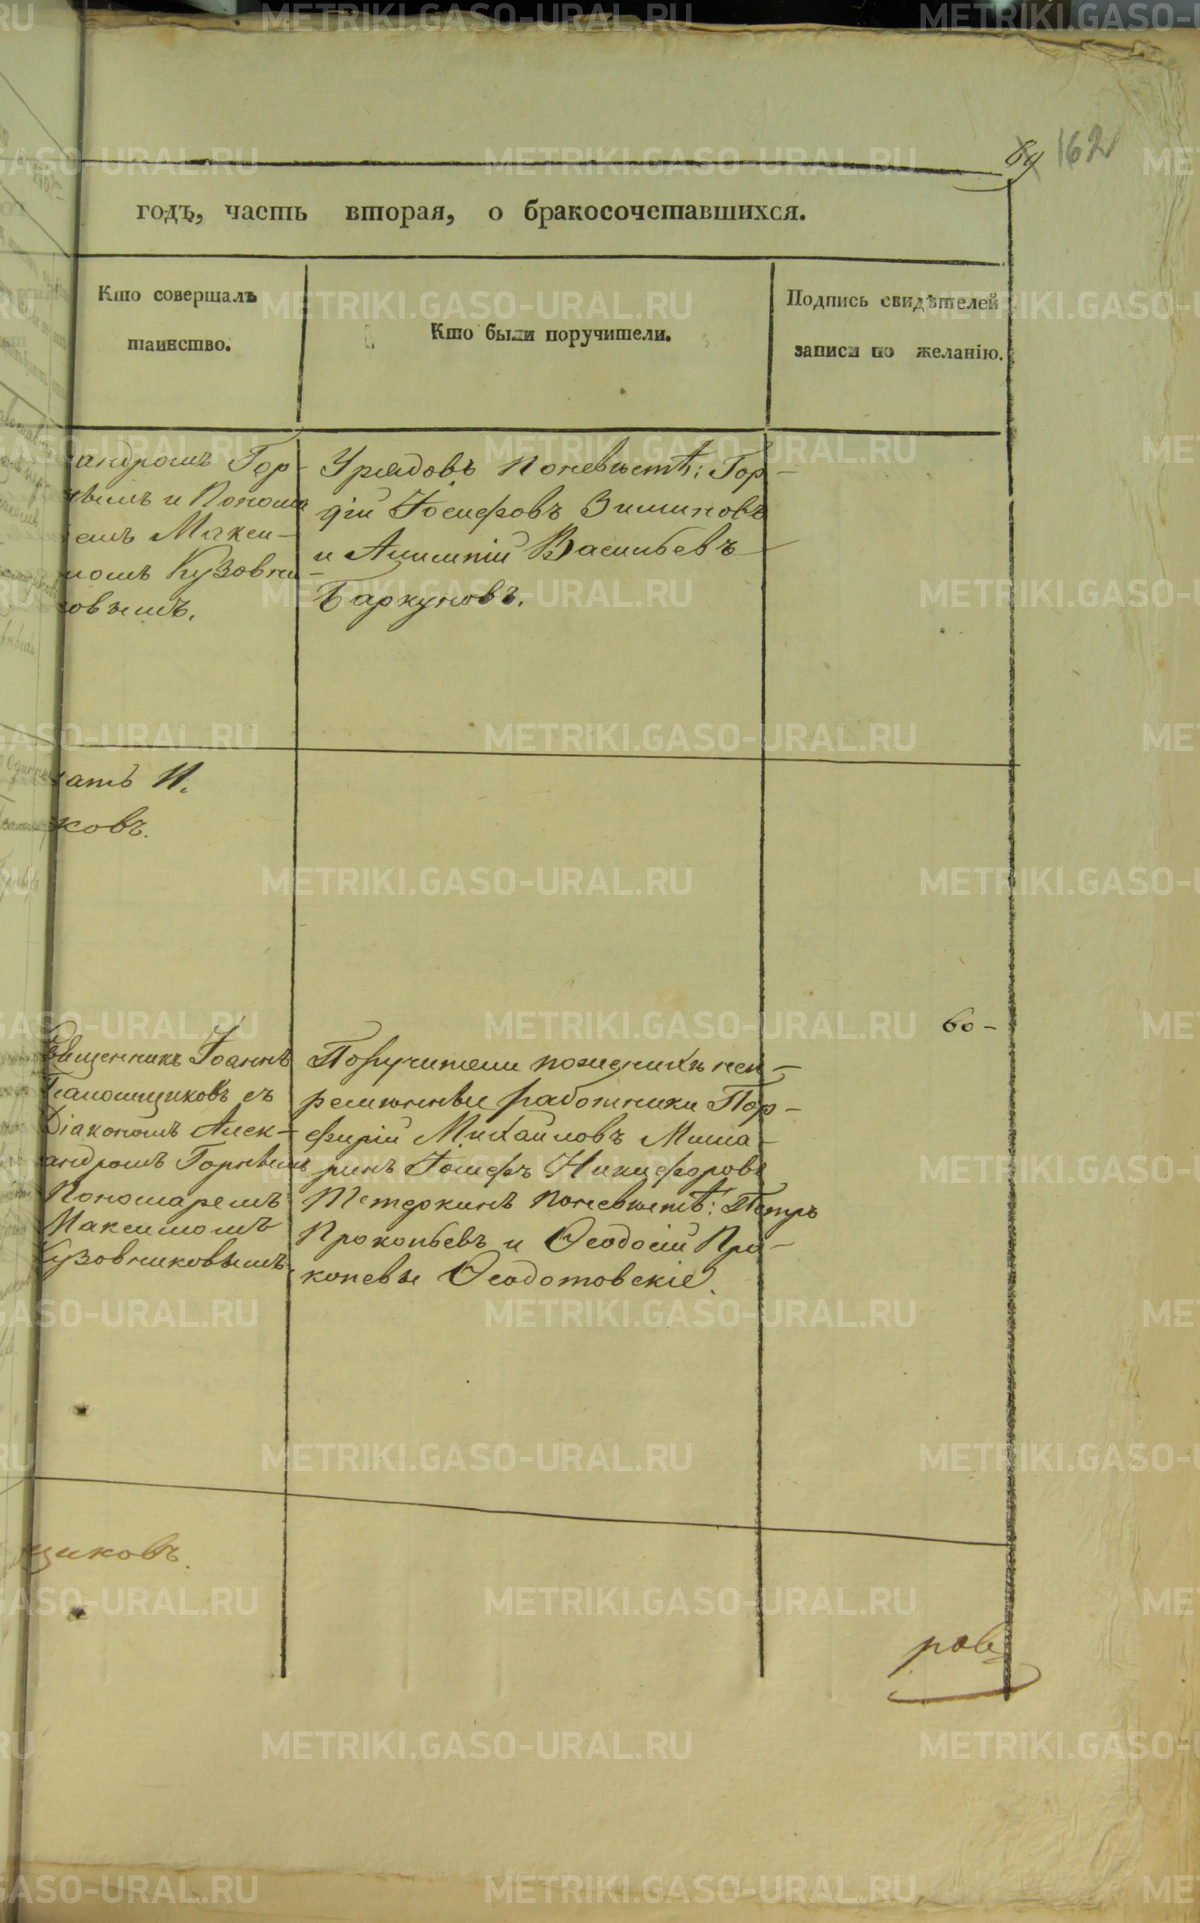 69 162
годъ, часть вторая, о бракосочетавшихся.
Кто совершалъ
таинство.
Кто были поручители.
Подпись свидѣтелей
записи по желанію.
андромъ Гор-
вымъ и Понома
емъ Макси-
момъ Кузовни-
овымъ.
Урядовъ поневѣстѣ: Гор-
дѣй Іосифовъ Зиминовъ
и Алимпій Васильевъ
Баркуновъ.
атъ И.
ковъ.
60-
Священникъ Іоаннъ
съ
Діакономъ Алек-
андромъ Горнвымъ
Пономаремъ
Максимомъ
Кузовниковымъ.
Поручители поженихѣ неп-
ремѣнные работники Пор-
фирій Михайловъ Миша-
ринъ Іосифъ Никифоровъ
Тетеркинъ поневѣстѣ: Петръ
Прокопьевъ и Ѳеодосій Про-
копевы Ѳеодотовскіе.
щиковъ.
ров
METRIKI.GASO-URAL.RU